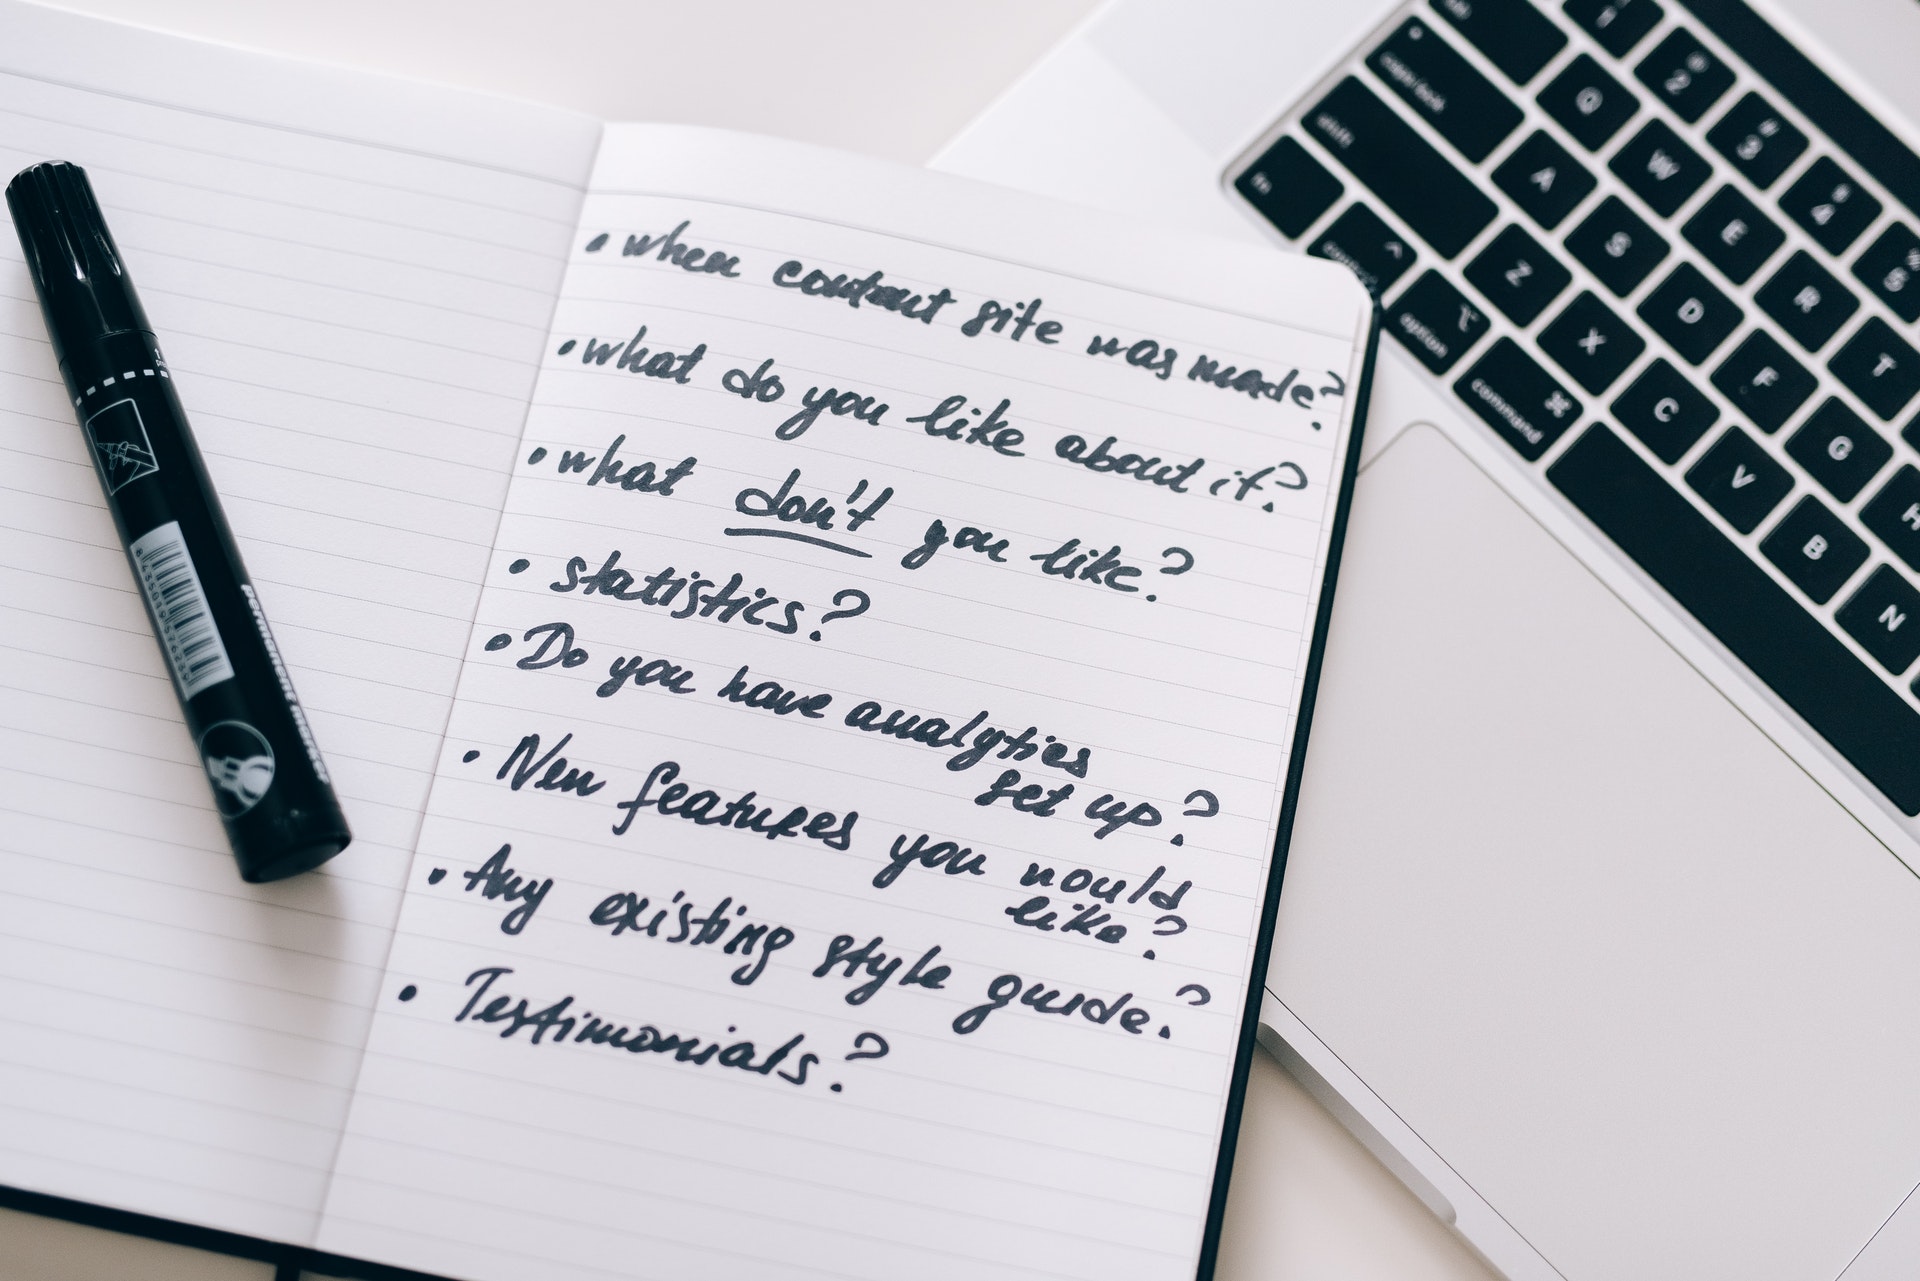 • when content site was made?
• what do you like about it?
• what don't you like?
• statistics?
• Do you have analytics
set up?
• New features you would
like?
• Any existing style guide?
• Testimonials?
permanent marker
Q W E R T
A S D F G H
Z X C V B N
1 2 3 4 5
fn
option
command